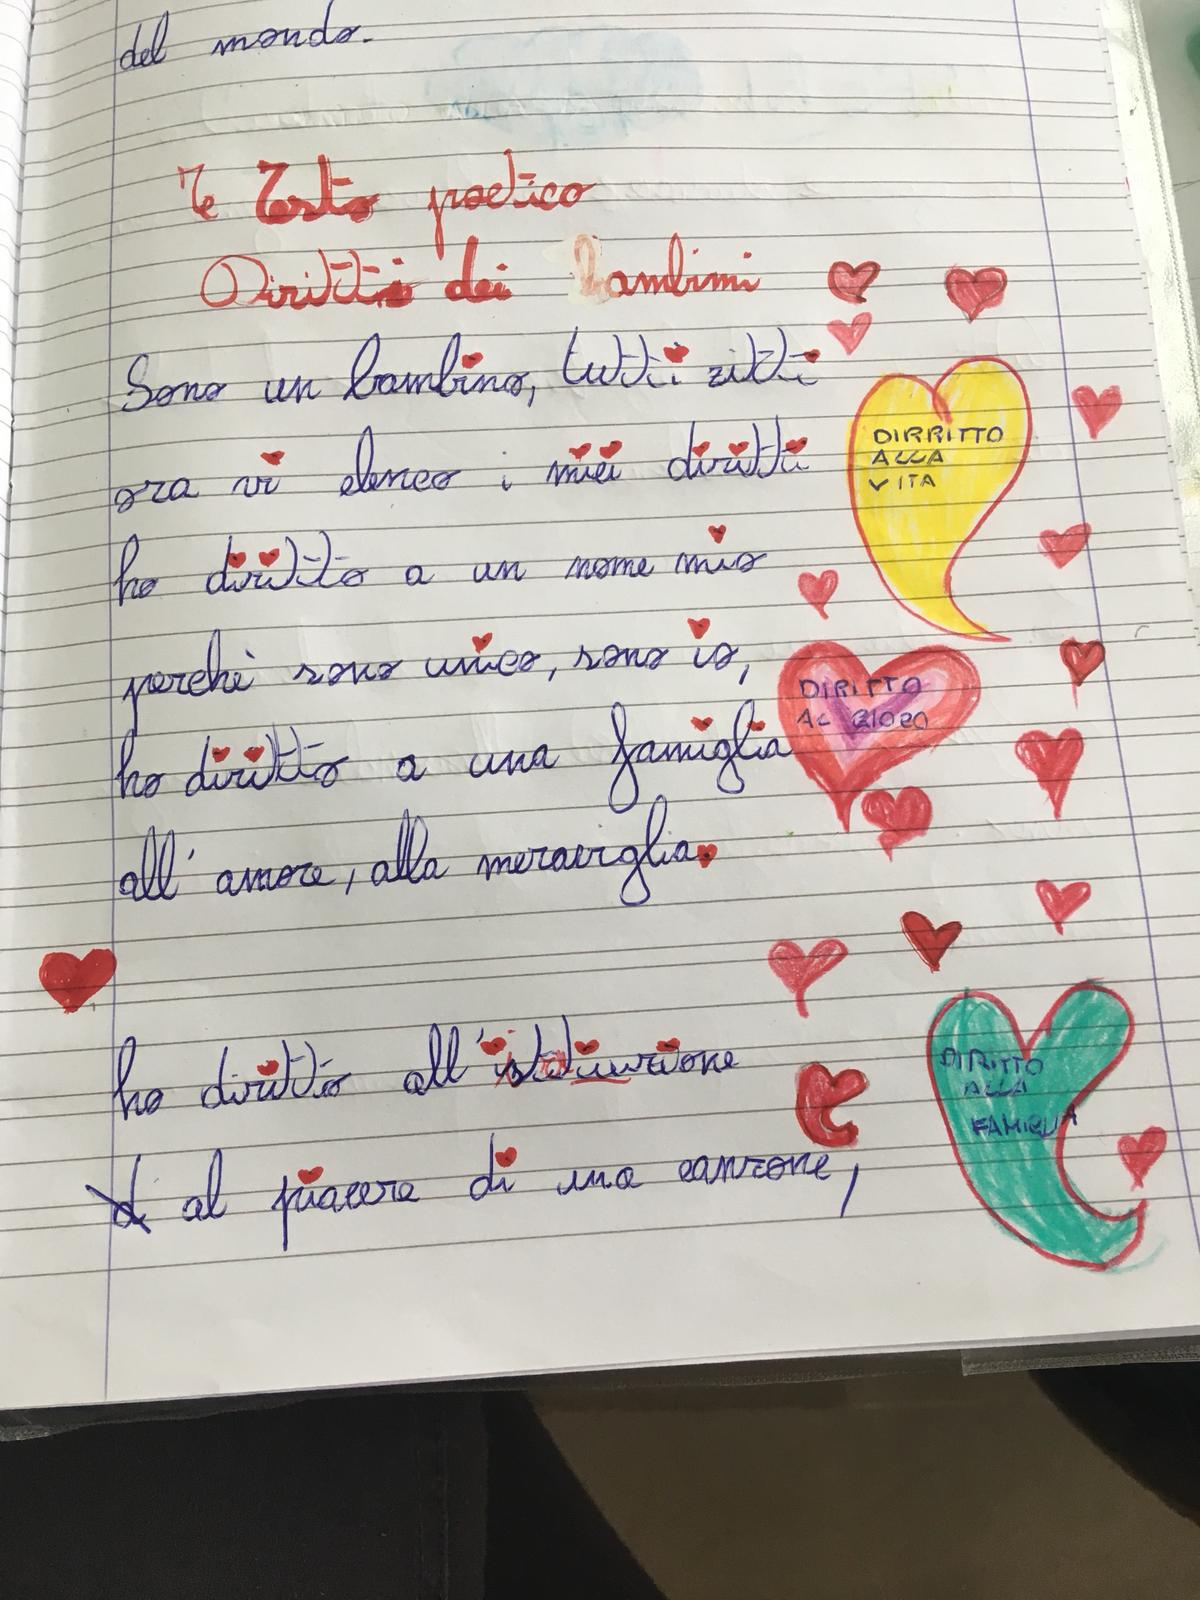 del mondo.
Testo poetico
Diritti dei bambini
Sono un bambino, tutti zitti
ora vi elenco i miei diritti
ho diritto a un nome mio
perchè sono unico, sono io,
ho diritto a una famiglia
all'amore, alla meraviglia.
ho diritto all'istiuzione
al piacere di una canzone,
DIRRITTO
ALLA
VITA
DIRITTO
AL GIOCO
DIRITTO
ALLA
FAMIGLIA